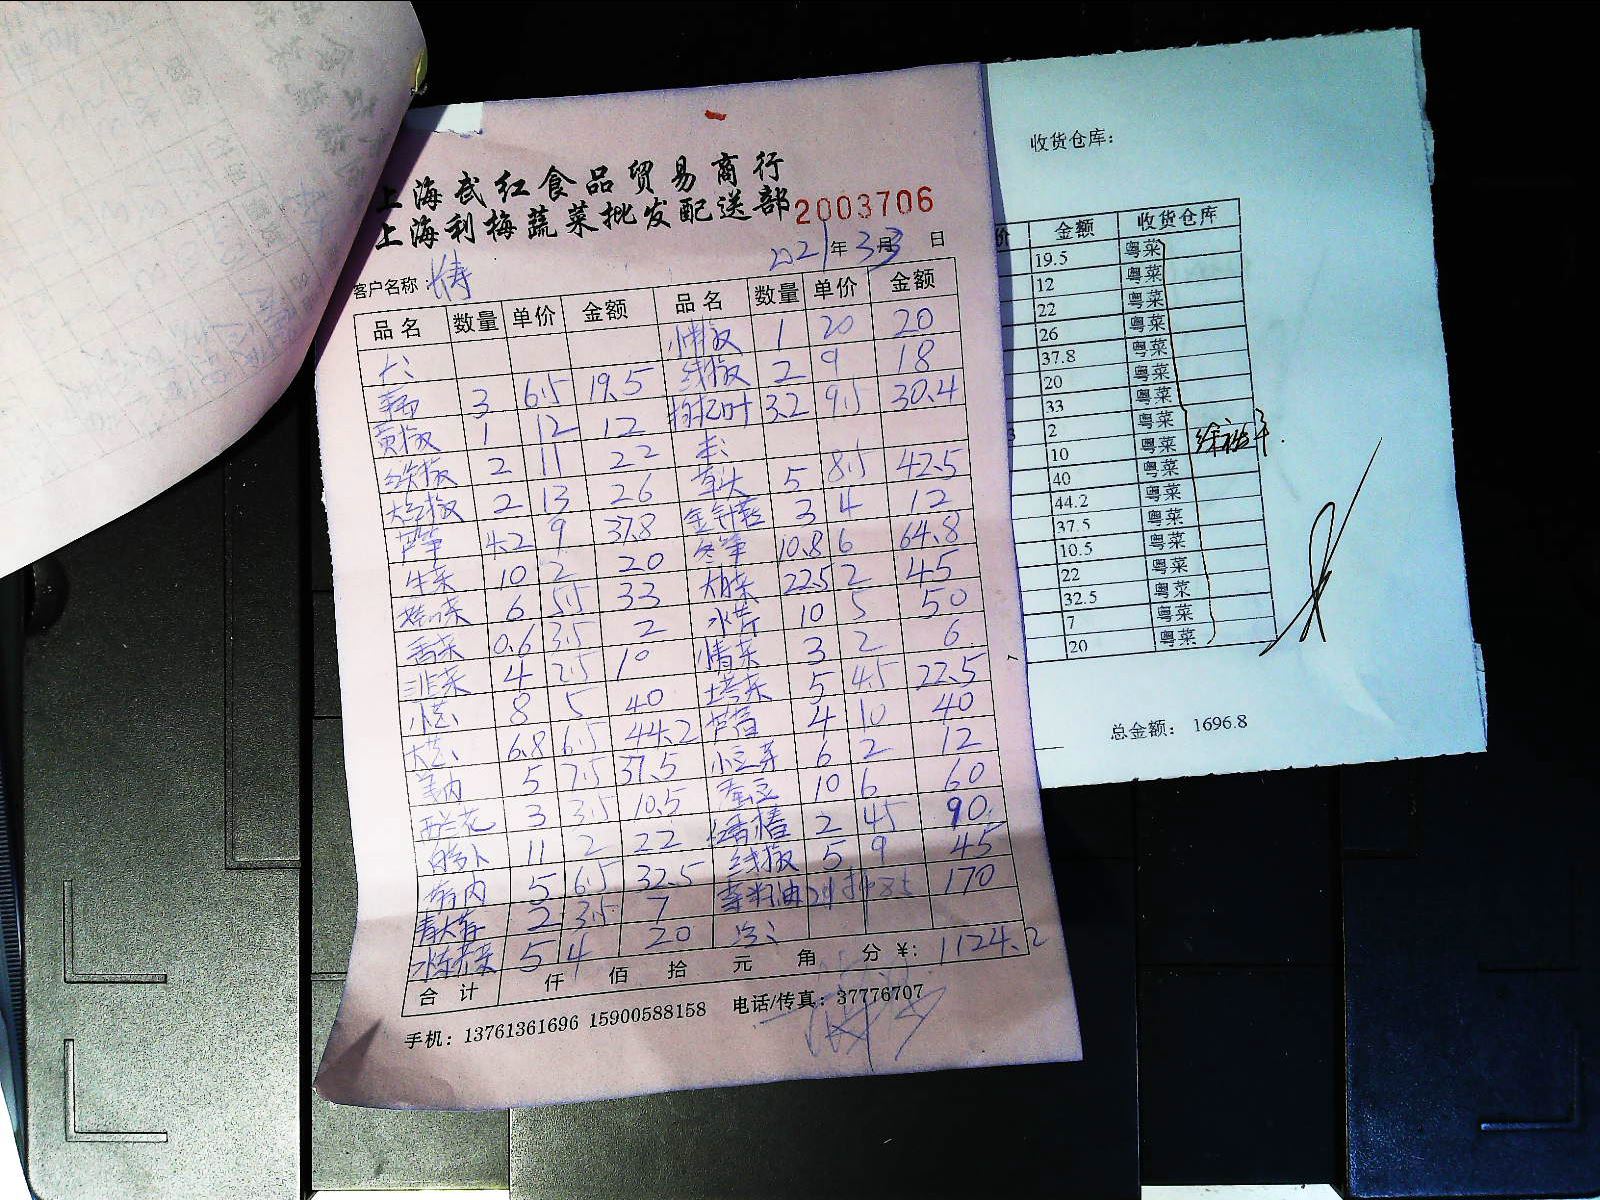 上海武红食品贸易商行
上海利梅蔬菜批发配送部 2003706
2021年3月3日
客户名称:
品名 数量 单价 金额 品名 数量 单价 金额
小米椒 1 20 20
3 6.5 19.5 线椒 2 9 18
黄椒 1 12 12 3.2 9.5 30.4
尖椒 2 11 22
大红椒 2 13 26 草头 5 8.5 42.5
芦笋 4.2 9 37.8 金针菇 3 4 12
生菜 10 2 20 冬笋 10.8 6 64.8
娃娃菜 6 5.5 33 大白菜 22.5 2 45
香菜 0.6 3.5 2 水芹 10 5 50
韭菜 4 2.5 10 青菜 3 2 6
小芒 8 5 40 塔菜 5 4.5 22.5
大芒 6.8 6.5 44.2 芦蒿 4 10 40
姜肉 5 7.5 37.5 小豆芽 6 2 12
西兰花 3 3.5 10.5 蚕豆 10 6 60
白萝卜 11 2 22 香椿 2 45 90
5 6.5 32.5 线椒 5 9 45
青大蒜 2 3.5 7 菜籽油 85 170
5 4 20
合计 仟 佰 拾 元 角 分 ¥: 1124.2
手机: 13761361696 15900588158 电话/传真: 37776707
收货仓库:
价 金额 收货仓库
19.5 粤菜
12 粤菜
22 粤菜
26 粤菜
37.8 粤菜
20 粤菜
33 粤菜
3 2 粤菜
10 粤菜
40 粤菜
44.2 粤菜
37.5 粤菜
10.5 粤菜
22 粤菜
32.5 粤菜
7 粤菜
20 粤菜
总金额: 1696.8